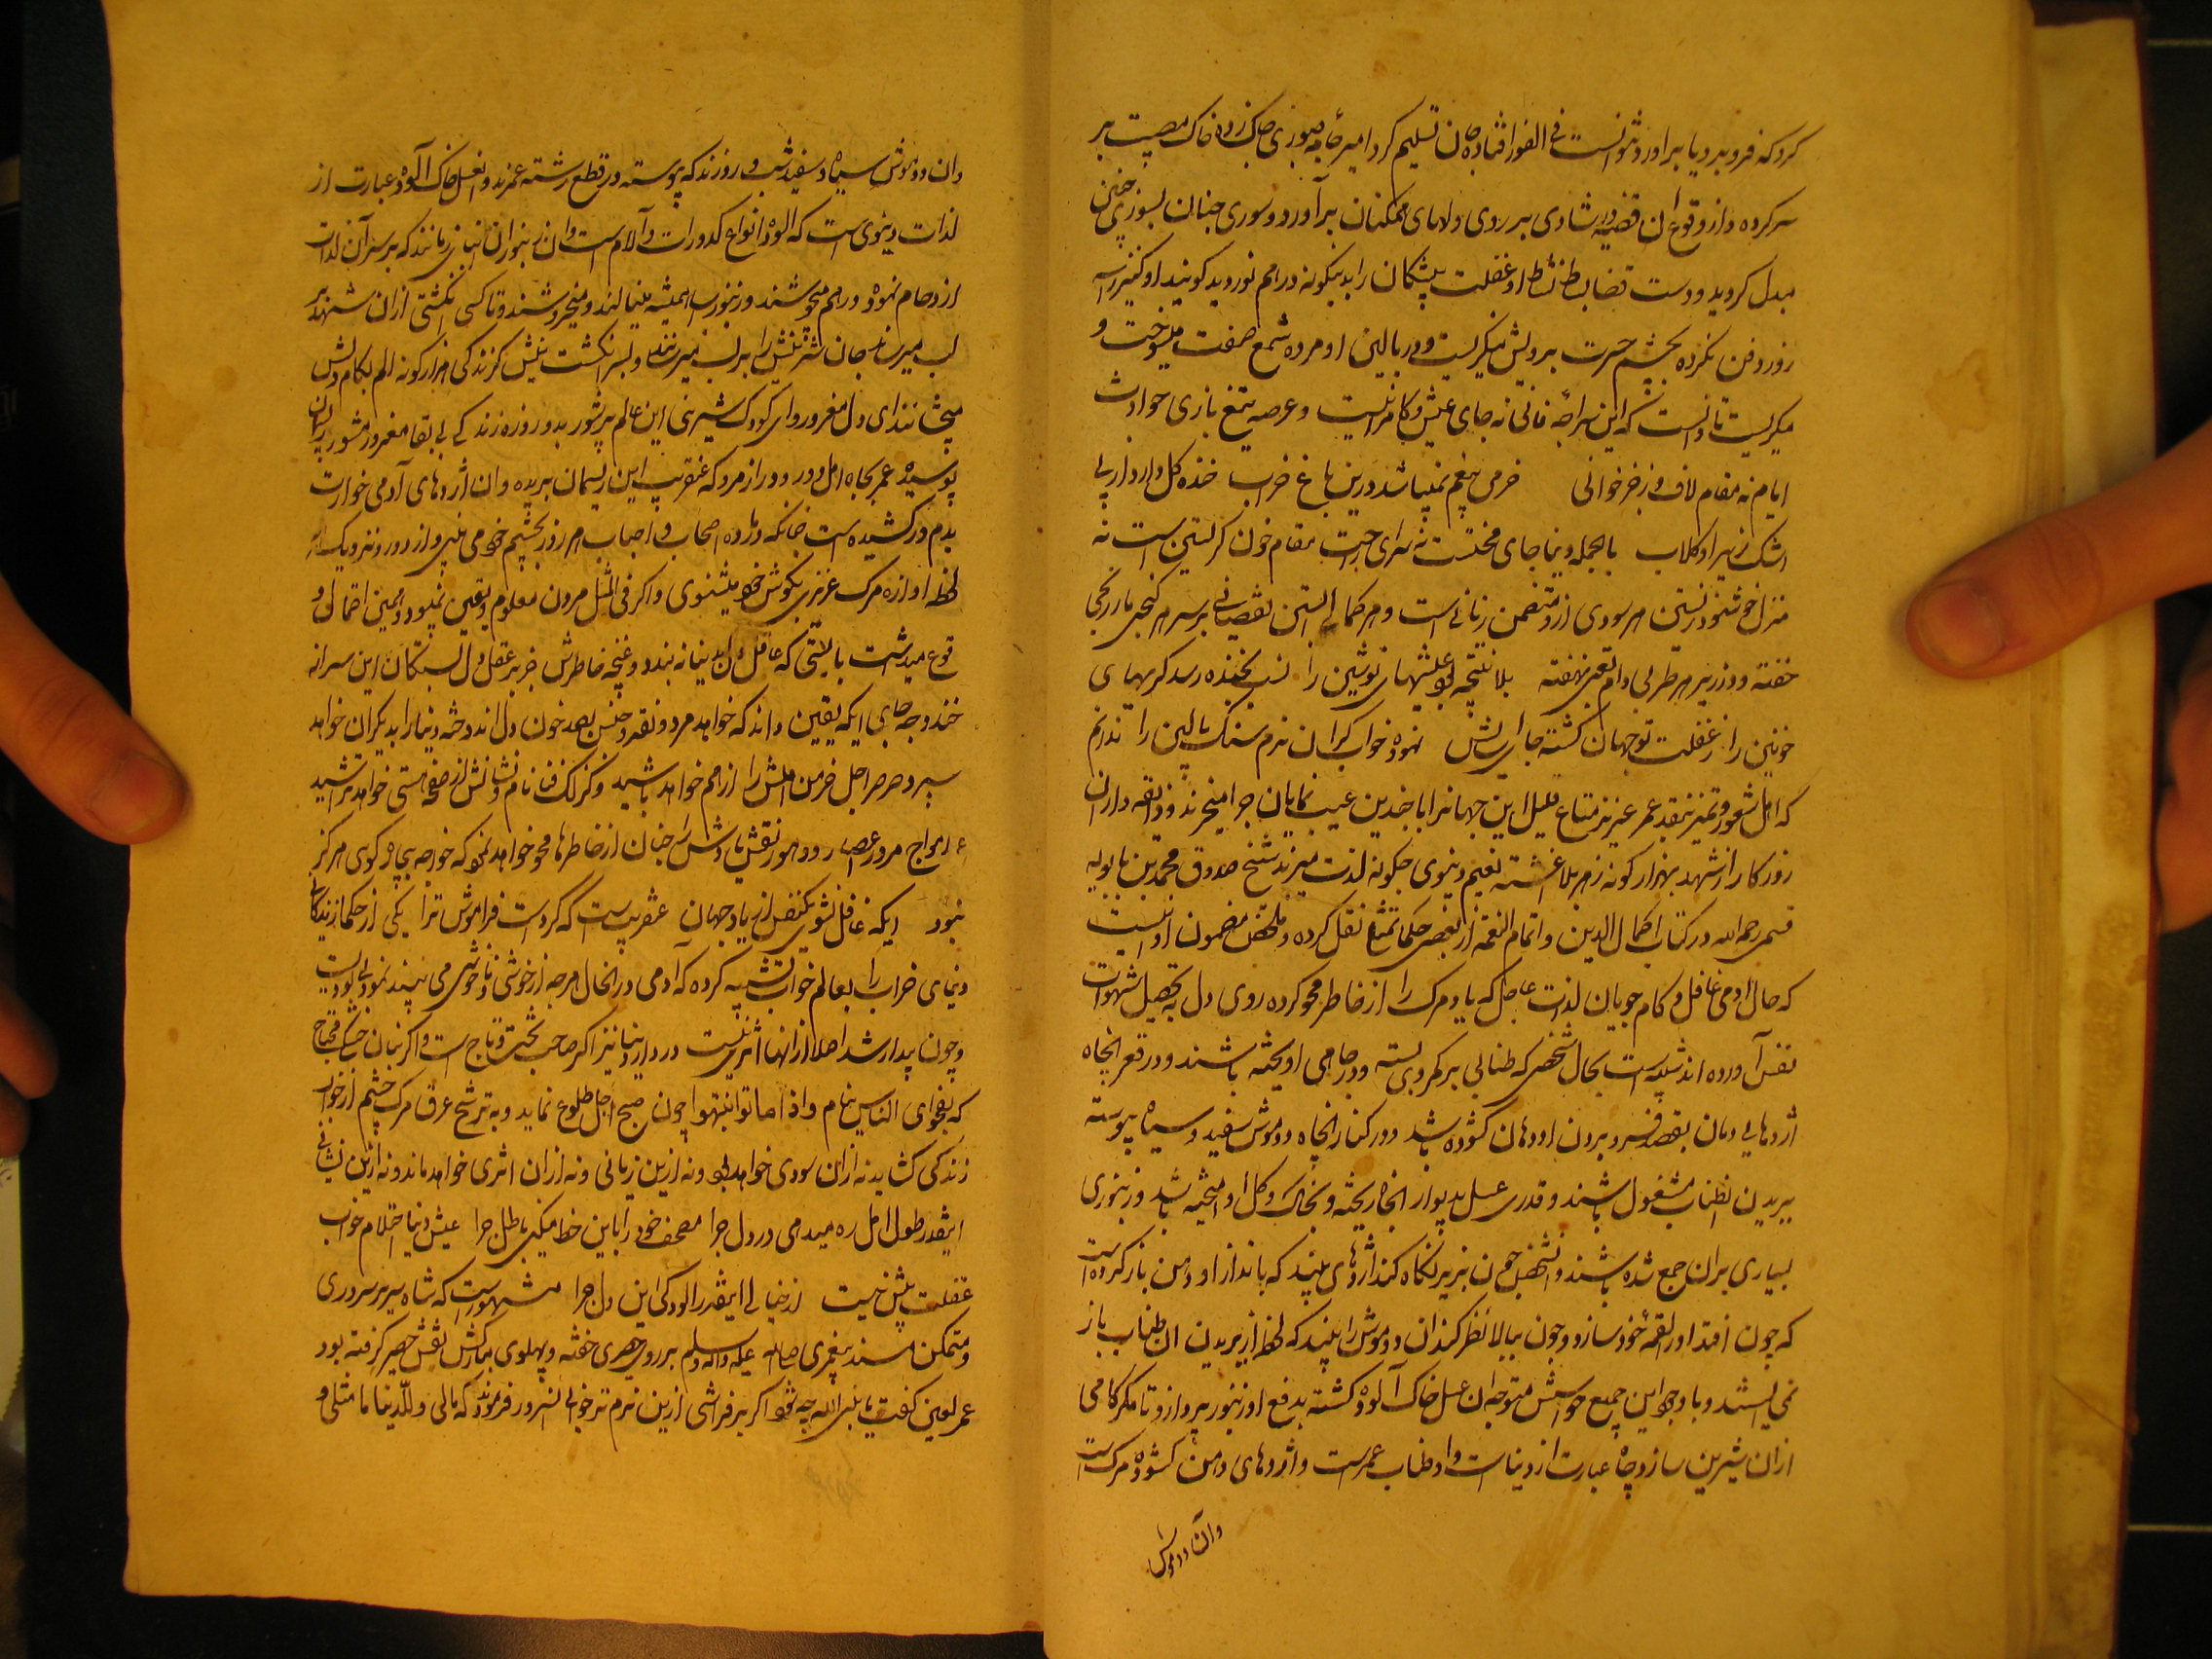 کرد که فرو برد یا برآورد نتوانست فی الفور افتاده جان تسلیم کرد امیر جامه صبوری چاک زده خاک مصیبت بر
سر کرده و از وقوع آن قضیه در شادی بر روی دلهای همکنان برآورد و سوری چنان بسوزی چنین
مبدل کردید و دست قضا بساط نشاط او غفلت پیشکان را بدینکونه در هم نوردید کویند او کنیز را سه
روز دفن نکرده بچشم حسرت برویش میکریست و در بالین او مرده شمع صفت میسوخت و
میکریست تا دانست که این سراچه فانی نه جای عیش و کامرانیست و عرصه تیغ بازی حوادث
ایام نه مقام لاف و زخرخوانی خرمی بیغم نمیباشد درین باغ خراب خنده کل دارد از پی
اشک ریز او کلاب بالجمله دنیا جای محنتست نه سرای راحت مقام خون کریستن است نه
منزل خوشنود زیستن هر سودی ازو متضمن زیانی است و هر کمالی آبستن نقصانی بر سر هر کنجی مار رنجی
خفته و در زیر هر طربی دام تعبی نهفته بلا نتیجه بود عیشهای نوشین را لب بخنده رسد کریهای
خونین را ز غفلت تو جهان کشته جای آسایش نموده خواب کران نرم سنک بالین را ندانم
که اهل شعور و تمیز بنقد عمر عزیز متاع قلیل این جهانرا با چندین عیب نمایان چرا میخرند و ذائقه داران
روزکار از شهد بهزار کونه زهر بلا آغشته نعیم دنیوی چکونه لذت میبرند شیخ صدوق محمد بن بابویه
قمی رحمه الله در کتاب اکمال الدین و اتمام النعمه از بعضی حکما تمثیلی نقل کرده و ملخص مضمون او اینست
که حال آدمی غافل و کام جویان لذت عاجل که یاد مرک را از خاطر محو کرده روی دل به تحصیل مشتهوات
نفس آورده اند شبیه است بحال شخصی که طنابی بر کمر وی بسته و در چاهی آویخته باشند و در قعر آنچاه
اژدهایی دمان بقصد فرو بردن او دهان کشوده باشد و در کنار آنچاه دو موش سفید و سیاه پیوسته
ببریدن آن طناب مشغول باشند و قدری عسل بدیوار آنچاه ریخته و بخاک و کل آمیخته باشد و زنبوری
بسیاری بران جمع شده باشند و آنشخص چون بزیر نکاه کند اژدهای بیند که باندازه او دهن باز کرده است
که چون افتد او را لقمه خود سازد و چون ببالا نظر کند آن دو موش را بیند که لحظه از بریدن آن طناب باز
نمی ایستند و با وجود این جمیع حواسش متوجه آن عسل خاک آلوده کشته بدفع آن زنبور پردازد تا مکر کامی
ازان شیرین سازد و چاه عبارت از دنیاست و آن طناب عمرست و اژدهای دهن کشوده مرک است
وآن دو موش
وان دو موش سیاه و سفید شب و روزند که پیوسته در قطع رشته عمرند و آن عسل خاک آلوده عبارت از
لذات دنیوی است که آلوده انواع کدورات و آلام است وان زنبوران ابنای زمانند که بر سر آن لذات
ازدحام نموده در هم میجوشند و زنبورسا همیشه مینالند و میخروشند و تا کسی انکشتی ازان شهد بر
لب میرساند جان شیرینش را بر لب میرسانند و بسر انکشت نیش کزندکی هزار کونه الم بکام دلش
میچشانند ای دل مغرور وای کودک شیرنی این عالم پرشور بدو روزه زندکی بی بقا مغرور مشو بریسمان
پوسیده عمر بچاه امل دور و دراز مرو که عنقریب این ریسمان بریده وان اژدهای آدمی خوارت
بدم در کشیده است چنانکه درباره اصحاب و احباب هر روز بچشم خود می بینی و از دور و نزدیک هر
لحظه آوازه مرک عزیزی بکوش خود میشنوی و اکر فی المثل مردن معلوم و یقین نمیبود و همین احتمال و
قوع میداشت بایستی که عاقل دل بدنیا نه بندد و غنچه خاطرش جز بر عقل دل بستکان این سرا نه
خندد چه جای اینکه یقین داند که خواهد مرد و نقد و جنس بصد خون دل اندوخته دنیا را بدیکران خواهد
سپرد صرصر اجل خرمن املش را از هم خواهد پاشید و کزلک فنا نام و نشانش از صفحه هستی خواهد تراشید
امواج مرور اعصار و دهور نقش یادش را چنان از خاطرها محو خواهد نمود که خواجه بیچاره کوی هرکز
نبود ایکه غافل نشوی یکنفس از یاد جهان عنقریب است که کردست فراموش ترا یکی از حکما زندکانی
دنیای خراب را بعالم خواب تشبیه کرده که آدمی در انحال هر چه از خوشی و ناخوشی می بیند نمود بی بودیست
و چون بیدار شد اصلا از آنها اثری نیست در دار دنیا نیز اکر صاحب تخت و تاج است و اکر بنان خشک محتاج
که بفحوای الناس نیام و اذا ماتوا انتبهوا چون صبح اجل طلوع نماید و به ترشح عرق مرک چشم از خواب
زندکی کشاید نه ازان سودی خواهد بود و نه ازین زیانی و نه ازان اثری خواهد ماند و نه ازین نشانی
اینقدر طول امل ره میدهی در دل چرا مصحف خود را باین خط میکنی باطل چرا عیش دنیا احتلام خواب
غفلت بیش نیست از خیالی اینقدر آلودکی ای دل چرا مشهور است که شاه سریر سروری
و متمکن مسند پیغمبری صلی الله علیه واله وسلم بر روی حصیری خفته و پهلوی مبارکش نقش حصیر کرفته بود
عمر لعین کفت یا نبی الله چه شود اکر بر فراشی ازین نرم تر خوابی آنسرور فرمودند که مالی وللدنیا ما مثلی و